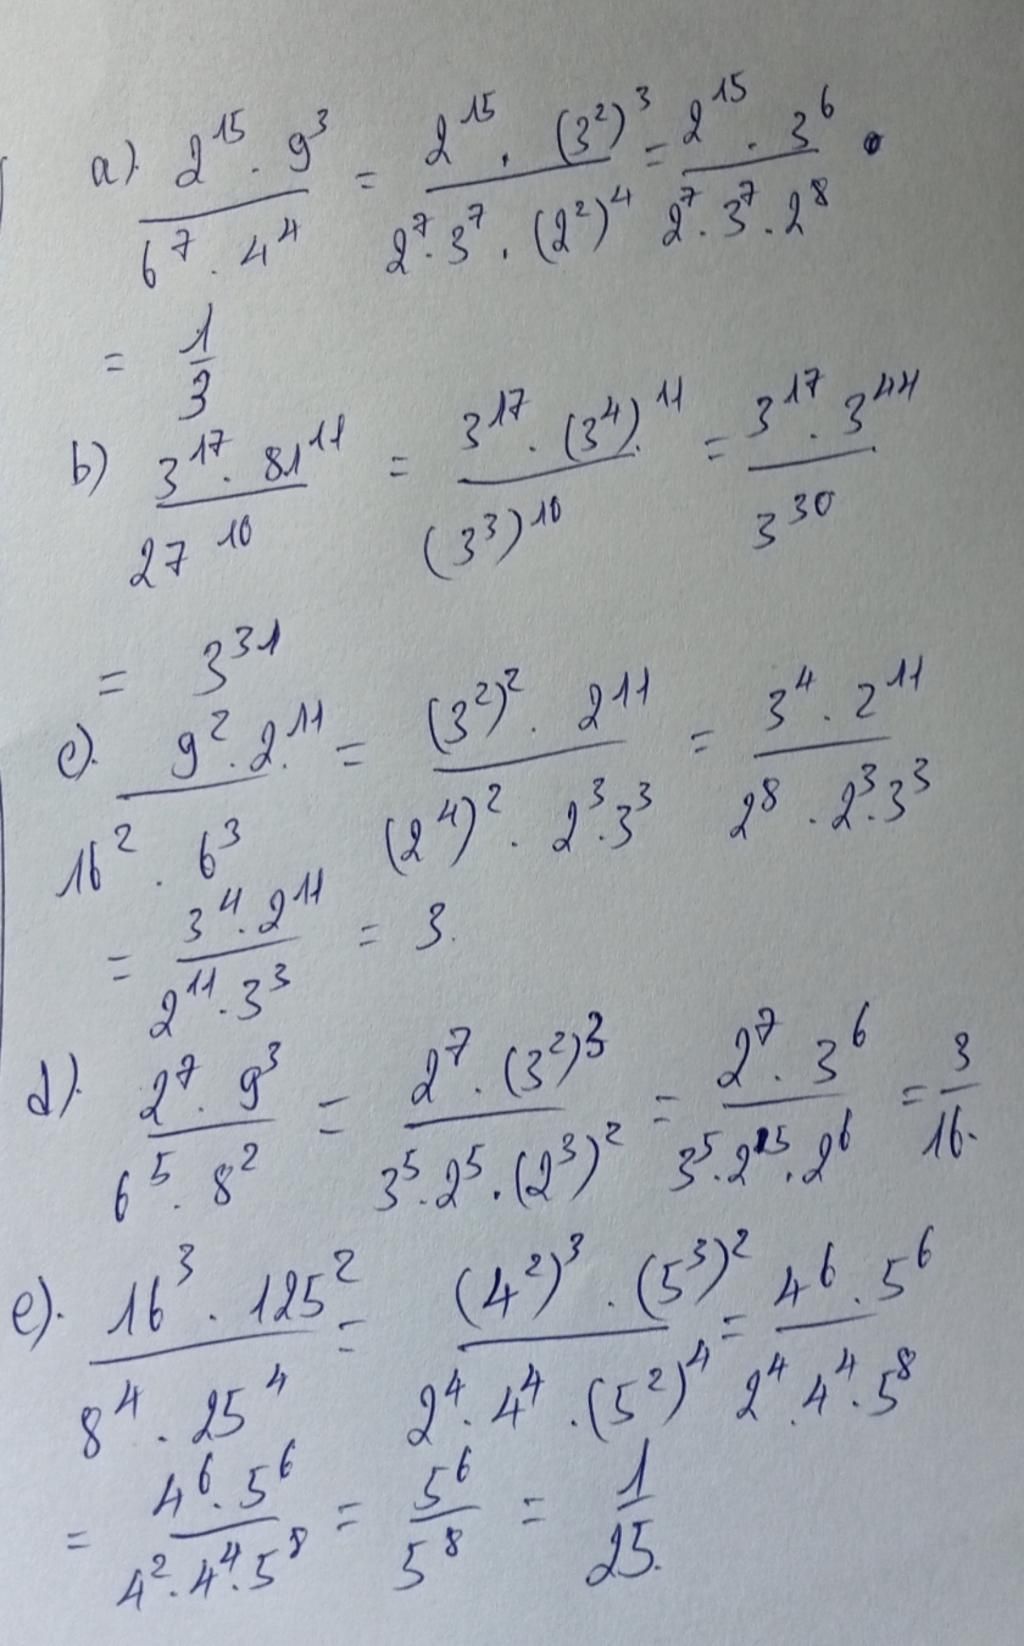 a). 2^15 · 9^3 / 6^7 · 4^4 = 2^15 · (3^2)^3 / 2^7 · 3^7 · (2^2)^4 = 2^15 · 3^6 / 2^7 · 3^7 · 2^8
= 1/3
b) 3^17 · 81^11 / 27^10 = 3^17 · (3^4)^11 / (3^3)^10 = 3^17 · 3^44 / 3^30
= 3^31
c). 9^2 · 2^11 / 16^2 · 6^3 = (3^2)^2 · 2^11 / (2^4)^2 · 2^3 · 3^3 = 3^4 · 2^11 / 2^8 · 2^3 · 3^3
= 3^4 · 2^11 / 2^11 · 3^3 = 3.
d). 2^7 · 9^3 / 6^5 · 8^2 = 2^7 · (3^2)^3 / 3^5 · 2^5 · (2^3)^2 = 2^7 · 3^6 / 3^5 · 2^5 · 2^6 = 3/16.
e). 16^3 · 125^2 / 8^4 · 25^4 = (4^2)^3 · (5^3)^2 / 2^4 · 4^4 · (5^2)^4 = 4^6 · 5^6 / 2^4 · 4^4 · 5^8
= 4^6 · 5^6 / 4^2 · 4^4 · 5^8 = 5^6 / 5^8 = 1/25.